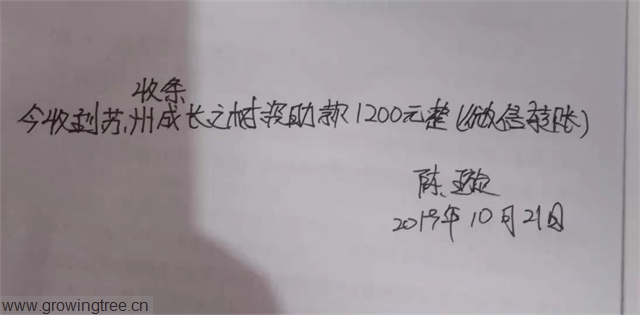 收条
今收到苏州成长之树资助款1200元整(微信转账)
陈
2019年10月21日
www.growingtree.cn